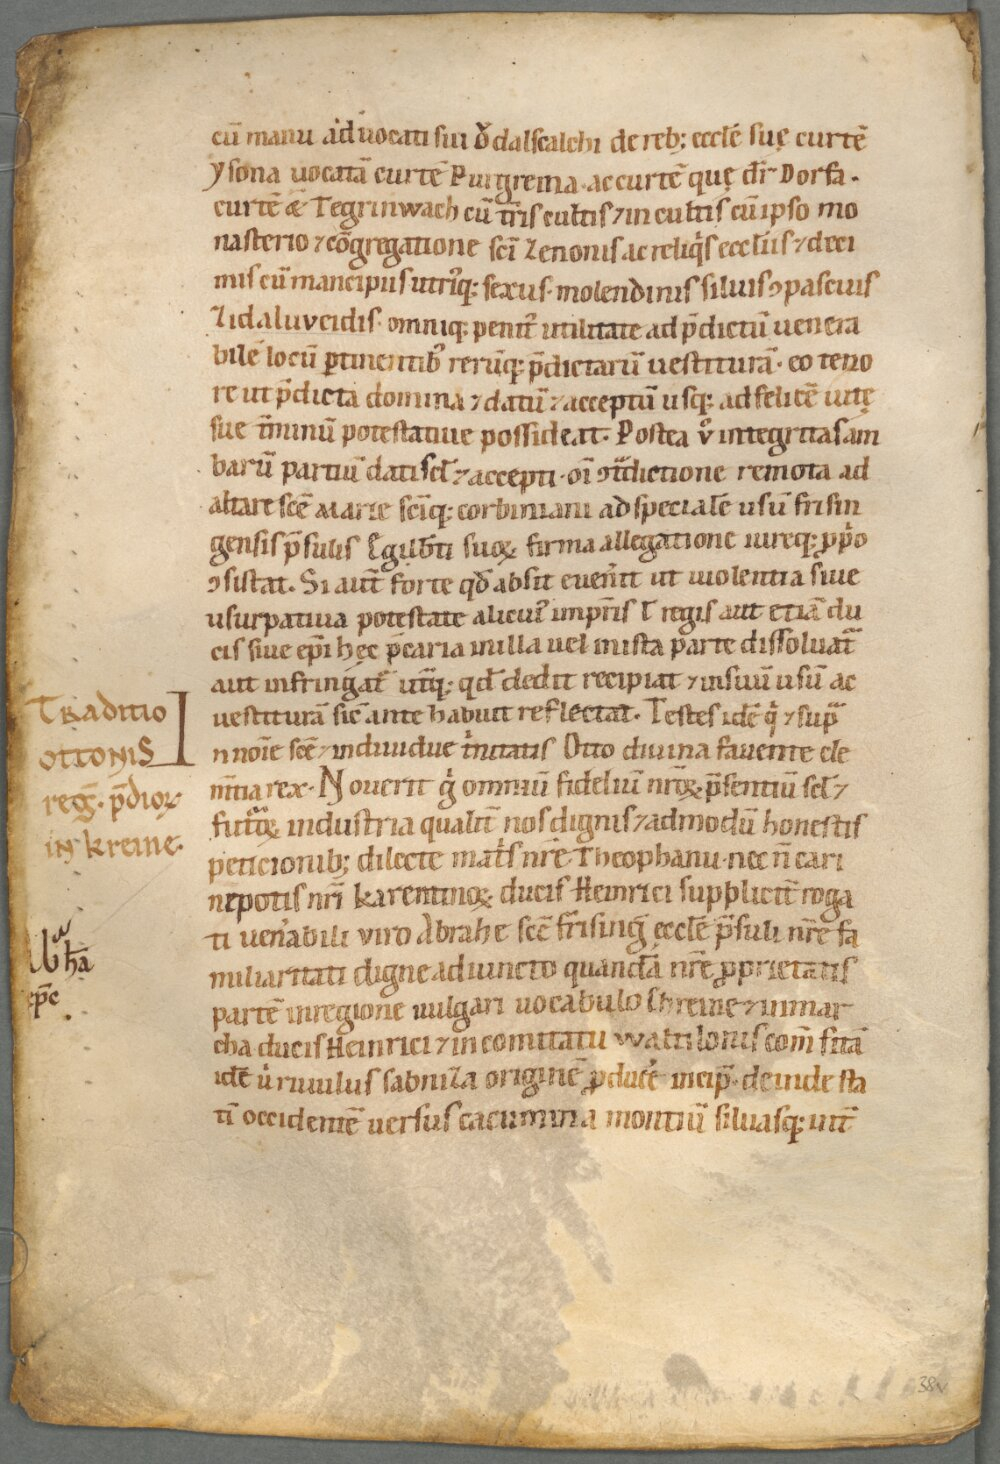 cū manu aduocati sui Ǒdalscalchi de reb; eccłe suę curtē
ysona uocatā curtē Purgreina. ac curtē quę dr̄ Dorfa.
curtē & Tegrinwach cū tr̄is cultis ⁊ incultis cū ipso mo
nasterio ⁊ cōgregatione sc̄i Zenonis ac reliq̇s eccłiis ⁊ deci
mis cū mancipiis utriq; sexus. molendinis siluis ɔpascuis
Zidaluueidis. omniq; penit᷑ utilitate ad p̄dictū uenera
bilē locū ꝑtinentib᷑ rerūq; p̄dictarū uestiturā. eo teno
re ut p̄dicta domina ⁊ datū ⁊ acceptū usq; ad felicē uitę
sue t̄minū potestatiue possideat. Postea v̊ integritas am
barū partiū dati scł ⁊ accepti. oī ɔt̄dictione remota ad
altare scē Marie scīq; corbiniani ad specialē usū frisin
gensis p̄sulis Egilb̄ti suoꝝ firma allegatione iureq; ꝑpͥo
ɔsistat. Si aut̄ forte qd̄ absit euen̄it ut uiolentia siue
usurpatiua potestate alicui᷑ imp̄ris ł regis aut etiā du
cis siue ep̄i hęc p̄caria in illa uel in ista parte dissoluat᷑
aut infringat᷑ ut̄q; qd̄ dedit recipiat ⁊ in suū usū ac
uestiturā sic̄ ante habuit reflectat. Testes idē qͥ ⁊ sup̄
In noīe scē ⁊ indiuidue tͥnitatis Otto diuina fauente cle
m̄tia rex. Nouerit gͥ omniū fidelium nr̄oꝝ p̄sentiū scł ⁊
futūroꝝ industria qualit̄ nos dignis ⁊ admodū honestis
peticionib; dilecte mat̄s nr̄e Theophanu. nec n̄ cari
nepotis nr̄i karentinoꝝ ducis Heinrici supplicit̄ roga
ti uen̄abili viro Abrahe scē frising̅ ęccłe p̄suli nr̄e fa
miliaritati digne adiuncto quandā nr̄e ꝓprietatis
partē in regione uulgari uocabulo Chreine ⁊ in mar
cha ducis Heinrici ⁊ in comitatu Waltilonis com̄ sitā
idē u̇ riuulus sabniza originē ꝓducēs incip̄. deinde sta
tī occidentē uersus cacumina montiū siluasq; int̄
Traditio
ottonis
reg̅. p̄dioꝝ
in kreine.
Ab
hā
ep̄c
38v